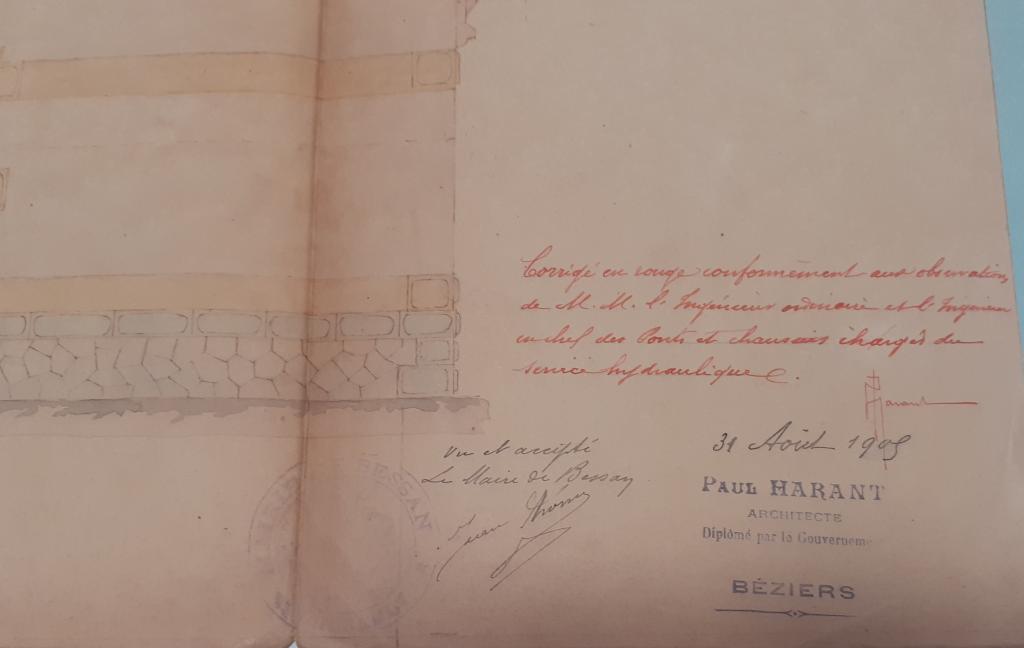 Corrigé en rouge conformément aux observations
de M. M. l'Ingénieur ordinaire et l'Ingénieur
en chef des Ponts et chaussées chargés du
service hydraulique.
Harant
31 Août 1905
vu et accepté
Le Maire de Bessan
PAUL HARANT
ARCHITECTE
Diplômé par le Gouverneme
BÉZIERS
BESSAN